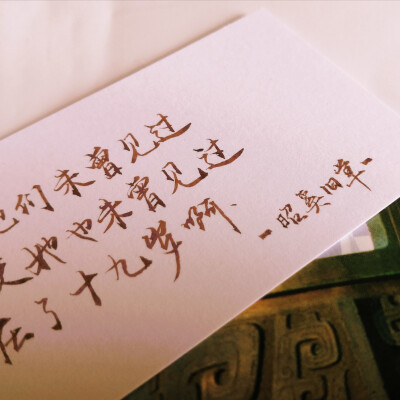 他们未曾见过
她也未曾见过
了十九岁啊
—昭奚旧草